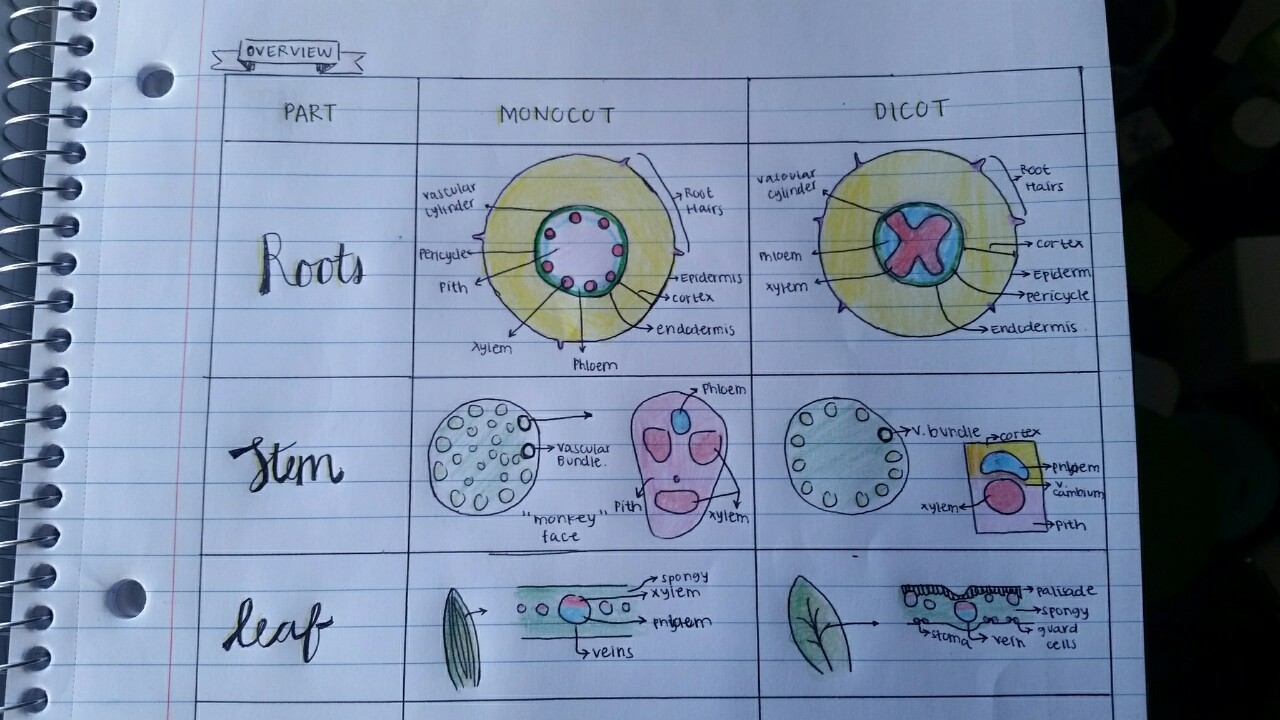 OVERVIEW
PART
MONOCOT
DICOT
Roots
vascular
cylinder
Root
Hairs
Pericycle
Pith
Epidermis
cortex
endodermis
xylem
Phloem
vascular
cylinder
Root
Hairs
Phloem
xylem
cortex
Epiderm
pericycle
Endodermis
Stem
vascular
Bundle.
"monkey"
face
Phloem
Pith
xylem
v. bundle
cortex
phloem
v.
cambium
xylem
pith
leaf
spongy
xylem
phloem
veins
palisade
spongy
guard
cells
stoma
vein